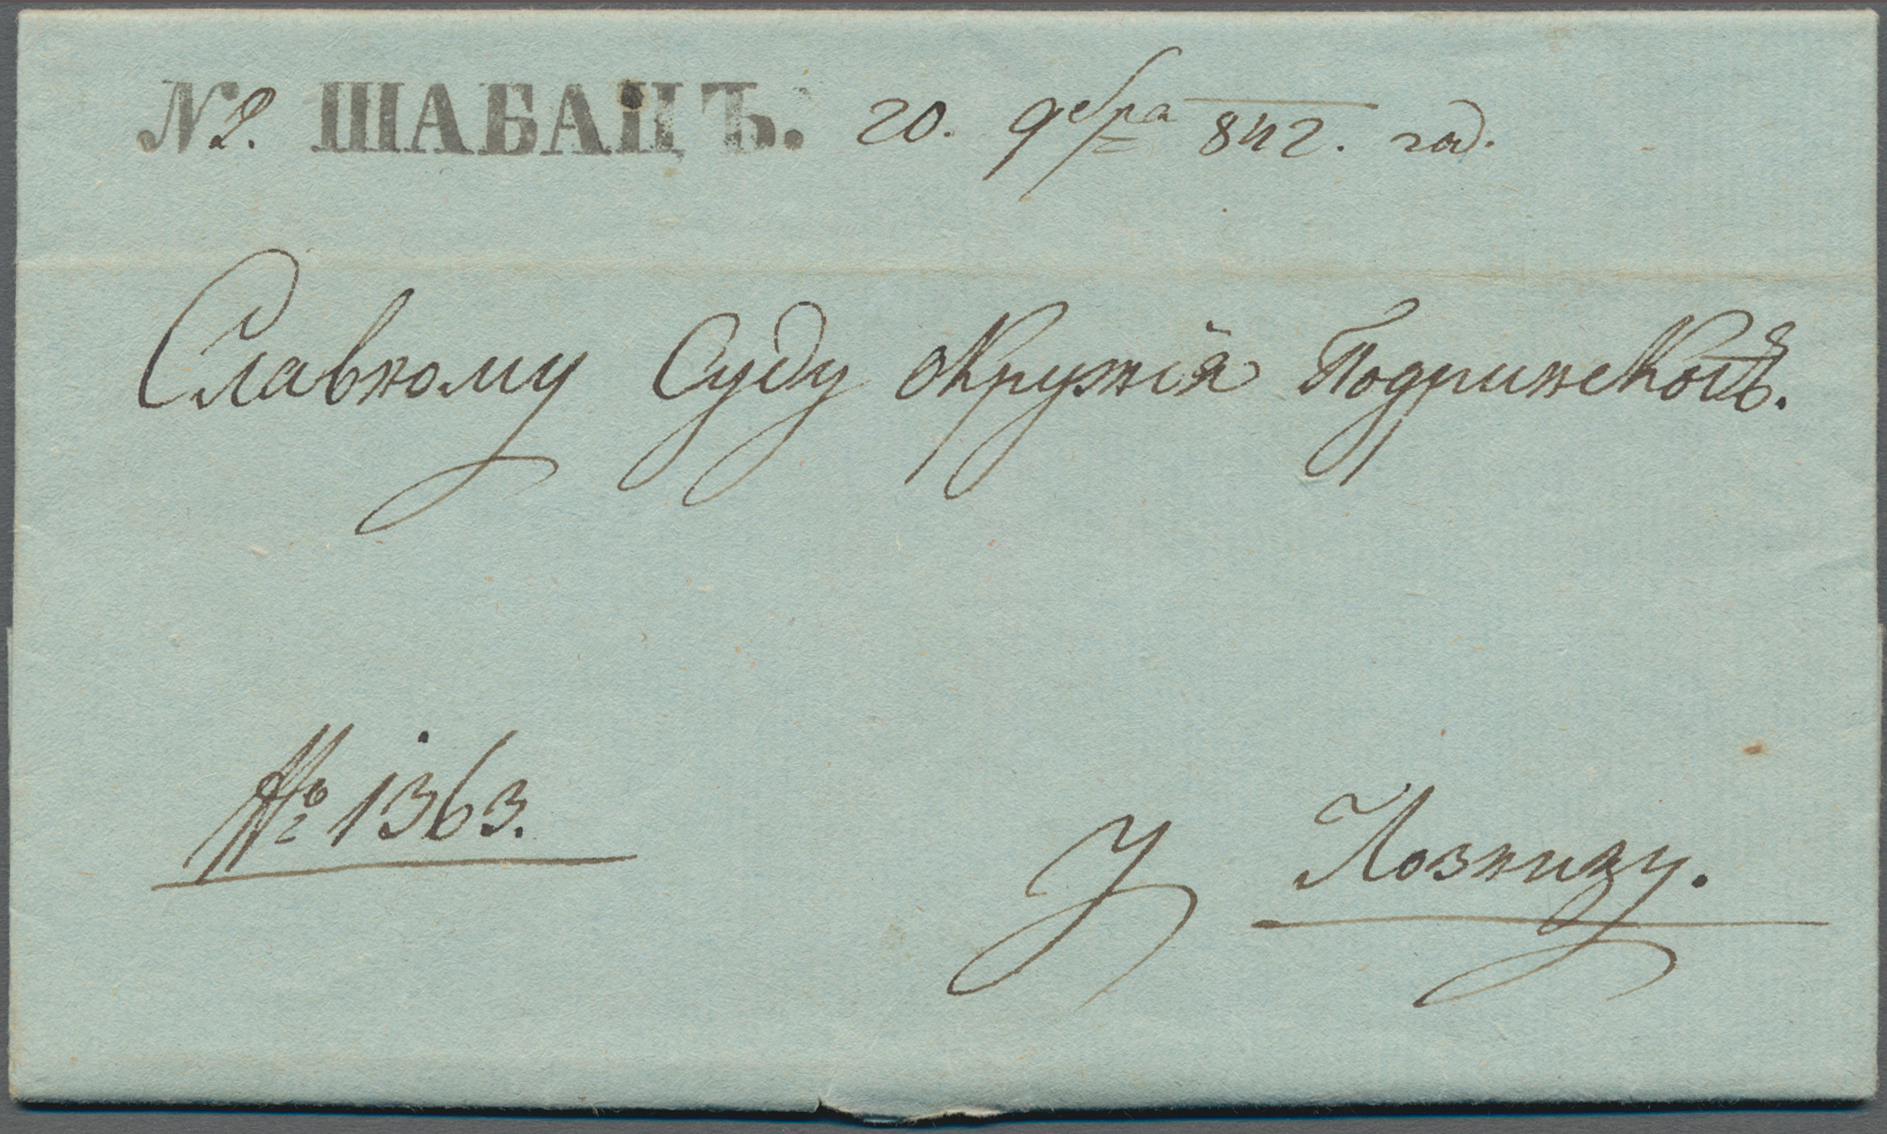 № 2. ШАБАЦЪ. 20. 9ебра 842. год.
Славному Суду окружія Подринскогъ.
№ 1363.
У Лозницу.